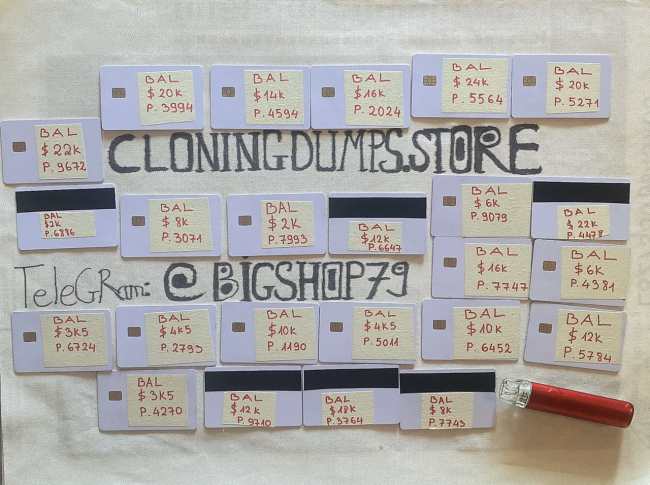 BAL
$20K
P.3994
BAL
$14K
P.4594
BAL
$16K
P.2024
BAL
$24K
P.5564
BAL
$20K
P.5271
BAL
$22K
P.9672
CLONINGDUMPS.STORE
BAL
$2K
P.6886
BAL
$8K
P.3071
BAL
$2K
P.7993
BAL
$12K
P.6647
BAL
$6K
P.9079
BAL
$22K
TeleGRam: @BIGSHOP79
BAL
$16K
P.7747
BAL
$6K
P.4381
BAL
$3K5
P.6724
BAL
$4K5
P.2793
BAL
$10K
P.1190
BAL
$4K5
P.5011
BAL
$10K
P.6452
BAL
$12K
P.5784
BAL
$3K5
P.4270
BAL
$12K
P.9710
BAL
$18K
P.3764
BAL
$8K
P.7743